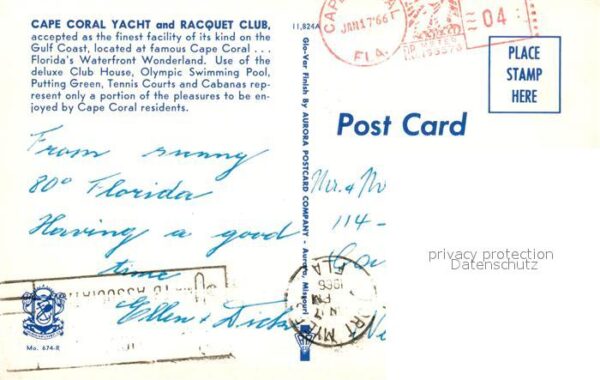 CAPE CORAL YACHT and RACQUET CLUB,
accepted as the finest facility of its kind on the
Gulf Coast, located at famous Cape Coral . . .
Florida's Waterfront Wonderland. Use of the
deluxe Club House, Olympic Swimming Pool,
Putting Green, Tennis Courts and Cabanas rep-
resent only a portion of the pleasures to be en-
joyed by Cape Coral residents.
From sunny
80° Florida
Having a good
time
Ellen + Dick
Mo. 674-R
11,824A
Glo-Var Finish By AURORA POSTCARD COMPANY - Aurora, Missouri
CAPE CORAL
JAN 17'66
FLA.
04
PLACE
STAMP
HERE
Post Card
Mr. &
114-
privacy protection
Datenschutz
FORT MYERS
FLA
1966
PM